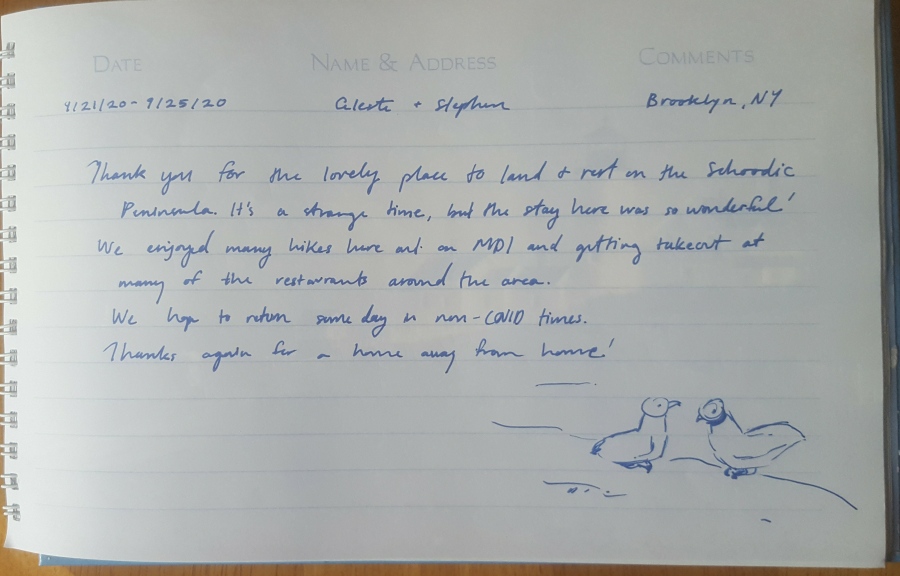 DATE NAME & ADDRESS COMMENTS
9/21/20 - 9/25/20 Celeste + Stephen Brooklyn, NY
Thank you for the lovely place to land & rest on the Schoodic
Peninsula. It's a strange time, but the stay here was so wonderful!
We enjoyed many hikes here and on MDI and getting takeout at
many of the restaurants around the area.
We hope to return some day in non-COVID times.
Thanks again for a home away from home!